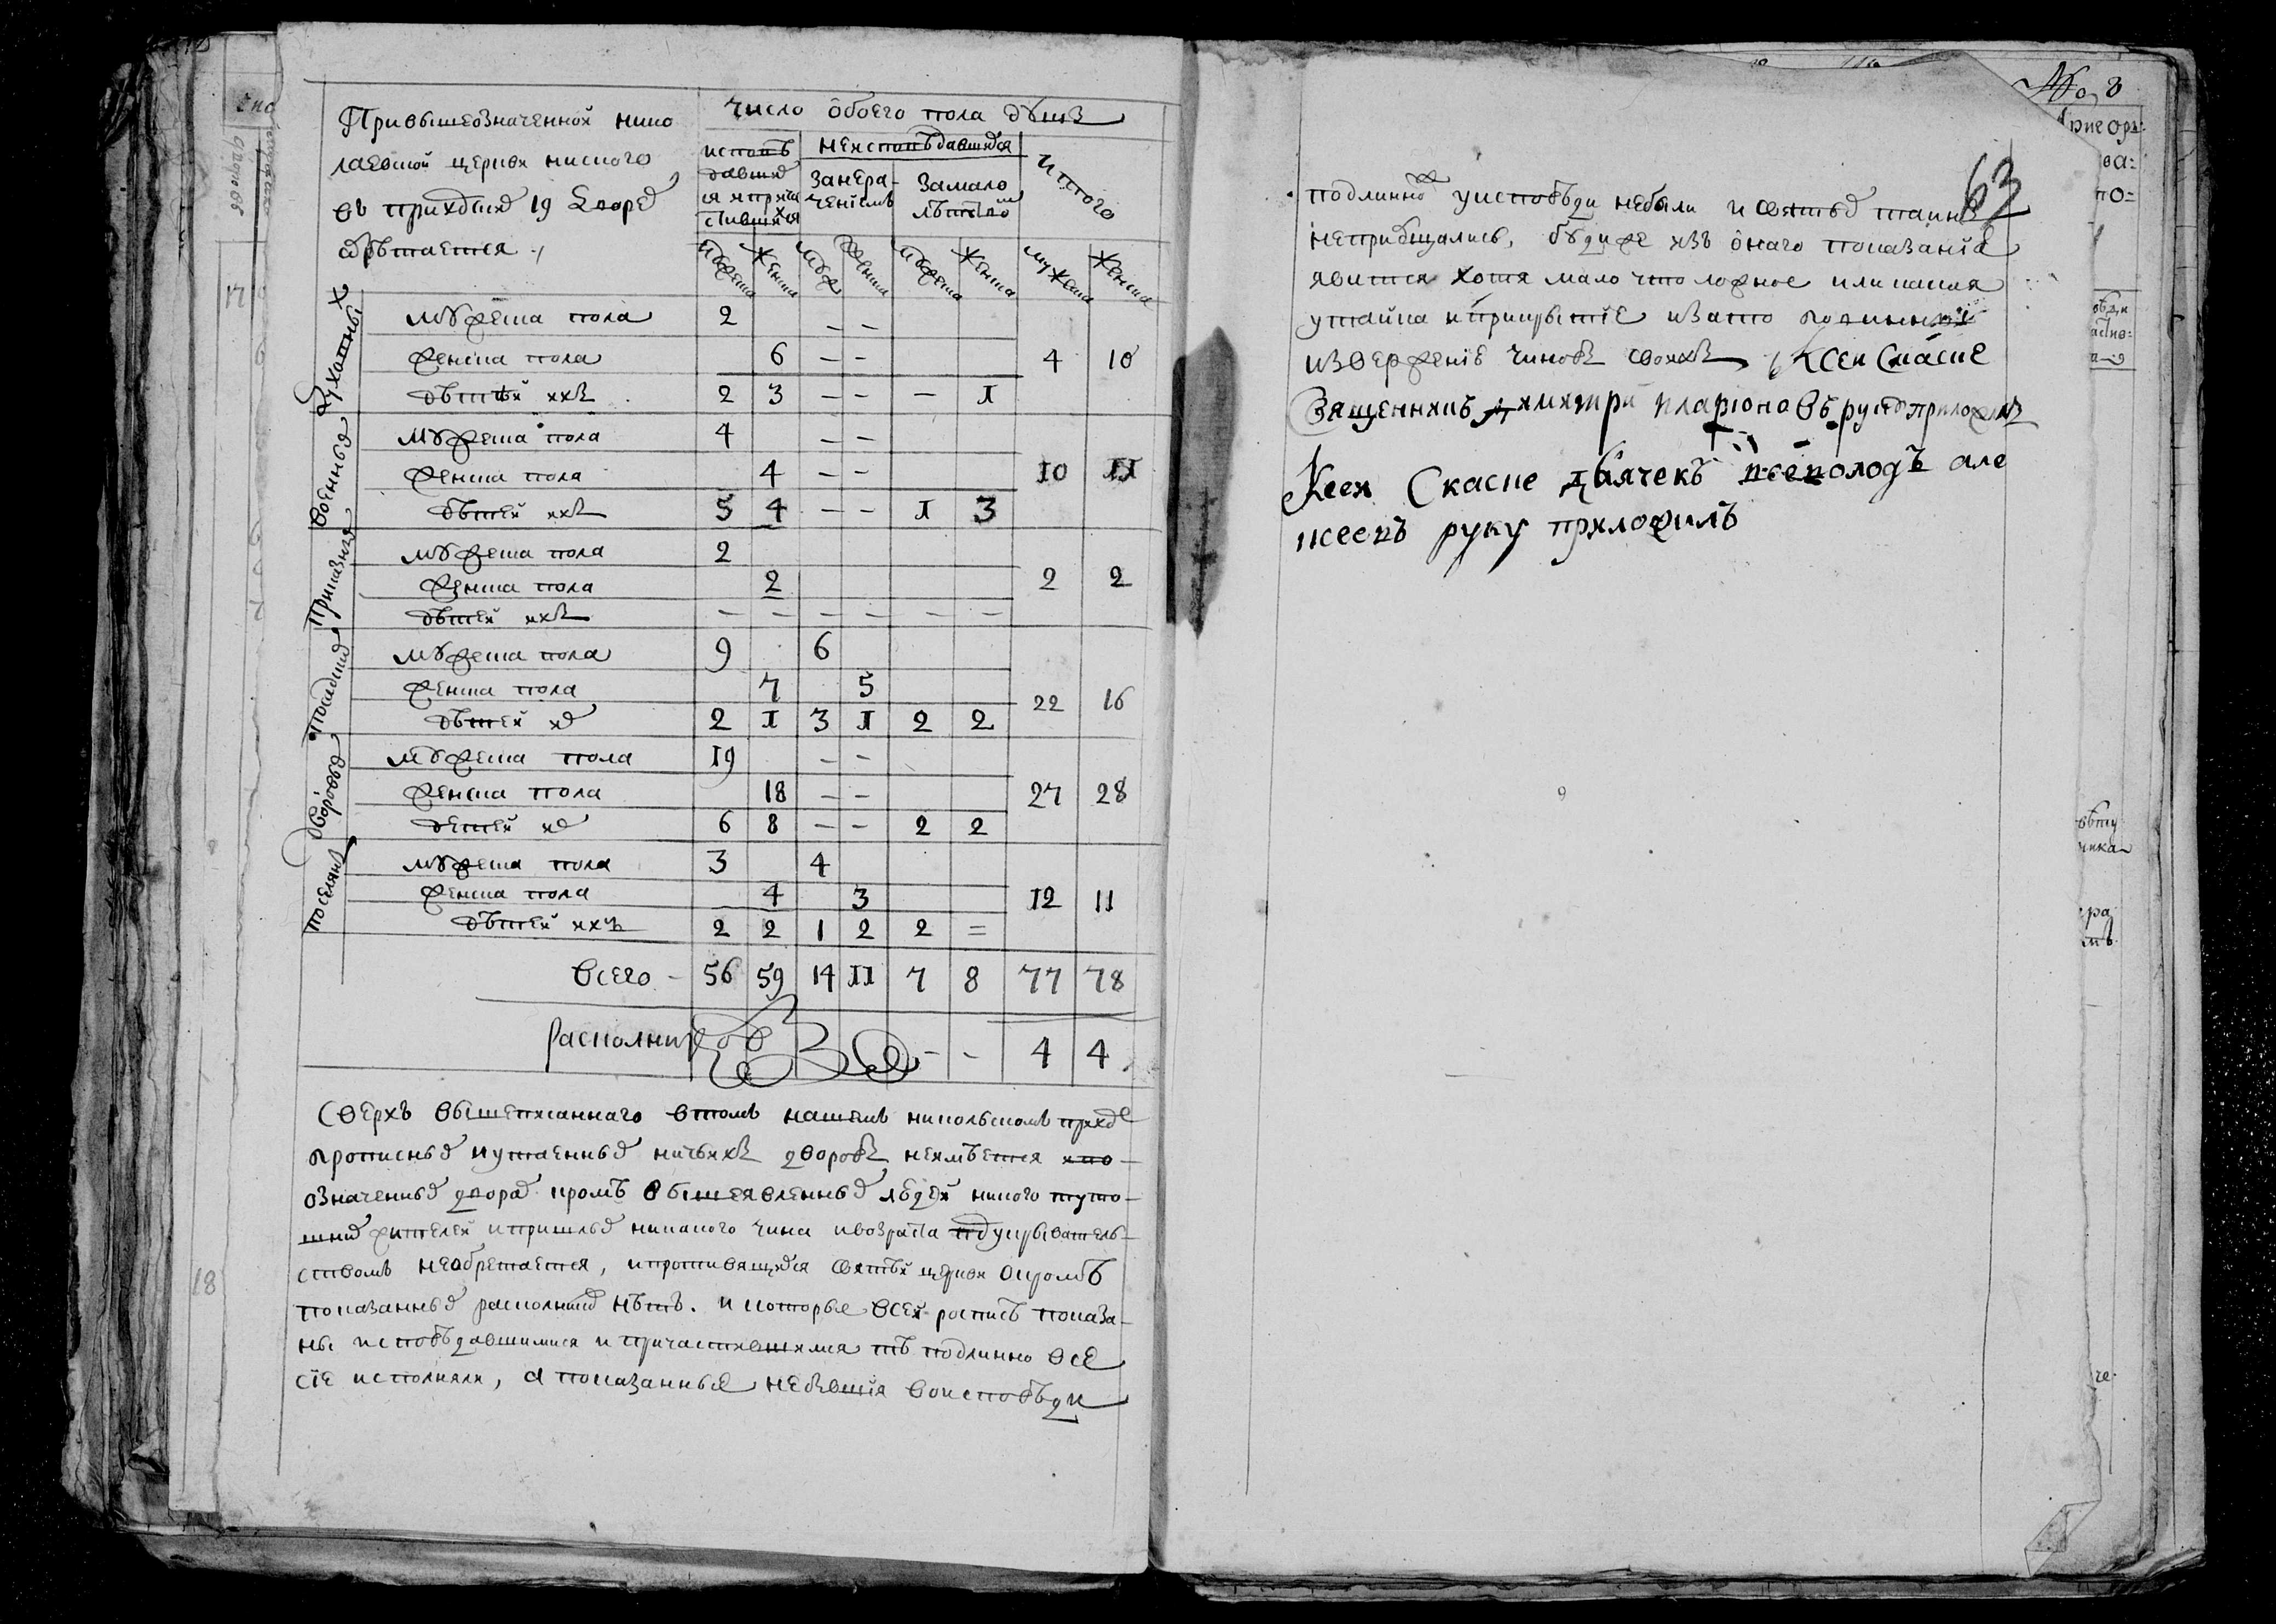 Привышеозначенной нико
лаевской церкви ниского
въ приходских 19 дворех
обретается
число обоего пола душъ
исповѣ
давших
ся и прича
стившихся
неисповѣдавшихся
занера-
чениемъ
замало
лѣтство
итого
мужеска женска муж женска мужеска женска мужеска женска
духовных
мужеска пола 2 – –
женска пола 6 – – 4 10
дѣтей ихъ 2 3 – – – 1
военных
мужеска пола 4 – –
женска пола 4 – – 10 11
дѣтей ихъ 5 4 – – 1 3
приказных
мужеска пола 2
женска пола 2 2 2
дѣтей ихъ – – – – – –
посадских
мужеска пола 9 6
женска пола 7 5 22 16
дѣтей их 2 1 3 1 2 2
дворовых
мужеска пола 19 – –
женска пола 18 – – 27 28
детей их 6 8 – – 2 2
поселянъ
мужеска пола 3 4
женска пола 4 3 12 11
дѣтей ихъ 2 2 1 2 2 =
всего – 56 59 14 11 7 8 77 78
расколниковъ – – 4 4
Сверхъ вышеписаннаго втомъ нашемъ николскомъ приходе
прописных иутаенных ничьихъ дворовъ неимѣется ино
означенных дворах кромѣ вышеявленных людей никого туто
шних жителей ипришлых никакого чина ивозраста подукрыватель
ствомъ необретается, ипротивящихся святѣй церкви окромѣ
показанных расколников нѣтъ. и которые всей росписѣ показа
ны исповѣдавшимися и причастившимися тѣ подлинно все
сїе исполняли, а показанные небывшїя воисповѣди
63
подлинно уисповѣди небыли и святых таинъ
неприбщались, будиже изъ онаго показанїа
явится хотя мало что ложное или какая
утайка иприкрытїе изато повинны
извержению чиновъ своихъ, Ксеи Скаске
Священникъ димитри иларионовъ руку приложилъ
Ксеи Скаске дьячекъ всеволодъ але
ксеевъ руку приложилъ
18
17